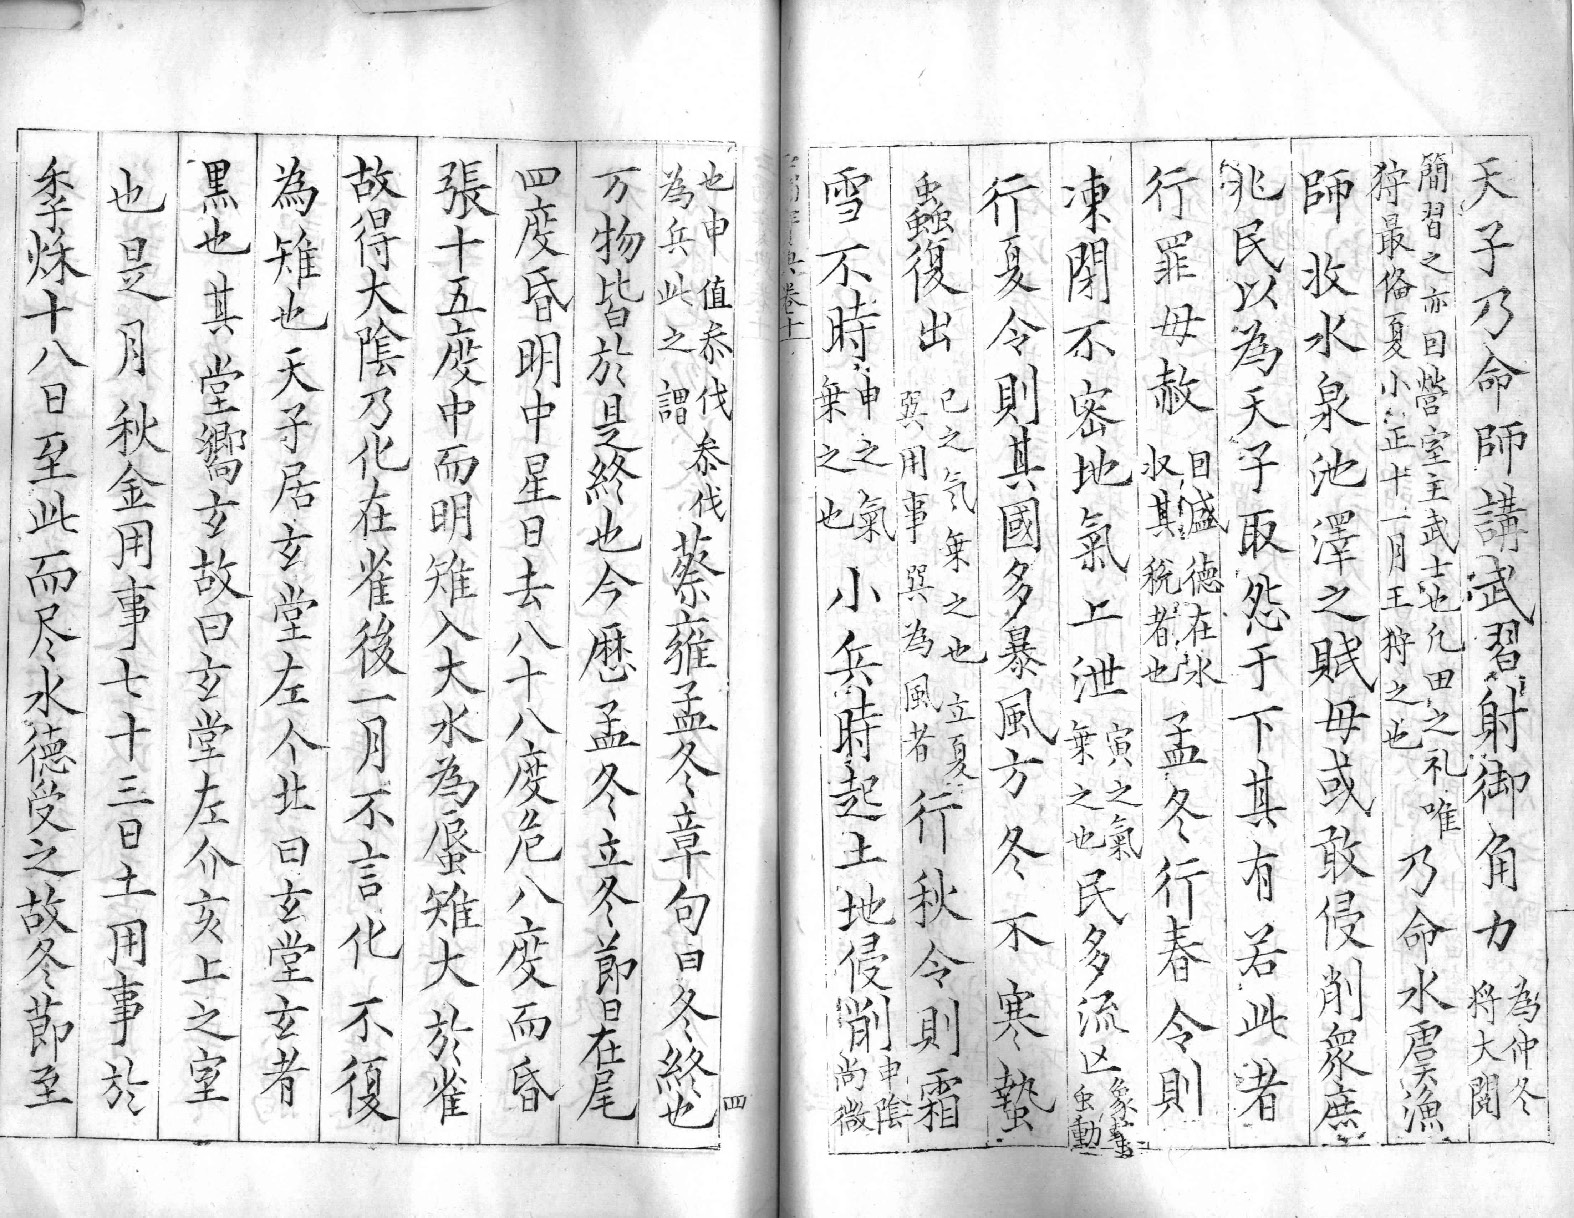 天子乃命師講武習射御角力為仲冬將大閱
簡習之亦曰營室主武士也凡田之礼唯狩最俻夏小正十一月王狩之也乃命水虞漁
師收水泉池澤之賦毋或敢侵削衆庶
兆民以為天子取怨于下其有若此者
行罪毋赦曰盛德在水收其稅者也孟冬行春令則
凍閉不密地氣上泄寅之氣乗之也民多流亡象蟄虫動
行夏令則其國多暴風方冬不寒蟄
蟲復出巳之気乗之也立夏巽用事巽為風者行秋令則霜
雪不時申之氣乗之也小兵時起土地侵削申陰尚微
也申值叅伐叅伐為兵此之謂蔡雍孟冬章句曰冬終也
万物皆於是終也今暦孟冬立冬節日在尾
四度昏明中星日去八十八度危八度而昏
張十五度中而明雉入大水為蜃雉大於雀
故得大隂乃化在雀後一月不言化不復
為雉也天子居玄堂左个北曰玄堂玄者
黒也其堂嚮玄故曰玄堂左介亥上之室
也是月秋金用事七十三日土用事於
季秋十八日至此而尽水德受之故冬節至
卷十
四